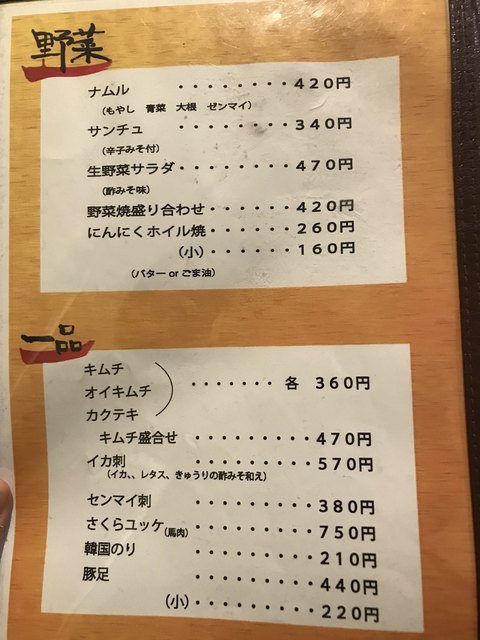 野菜
ナムル ・・・・・・・・420円
(もやし 青菜 大根 ゼンマイ)
サンチュ ・・・・・・・・340円
(辛子みそ付)
生野菜サラダ・・・・・・・・470円
(酢みそ味)
野菜焼盛り合わせ・・・・・・420円
にんにくホイル焼・・・・・・260円
(小)・・・・・・160円
(バター or ごま油)
一品
キムチ
オイキムチ ・・・・・・・ 各 360円
カクテキ
キムチ盛合せ ・・・・・・・・・470円
イカ刺 ・・・・・・・・・570円
(イカ、、レタス、きゅうりの酢みそ和え)
センマイ刺 ・・・・・・・・・380円
さくらユッケ(馬肉) ・・・・・・・・・750円
韓国のり ・・・・・・・・・210円
豚足 ・・・・・・・・・440円
(小)・・・・・・・・・220円